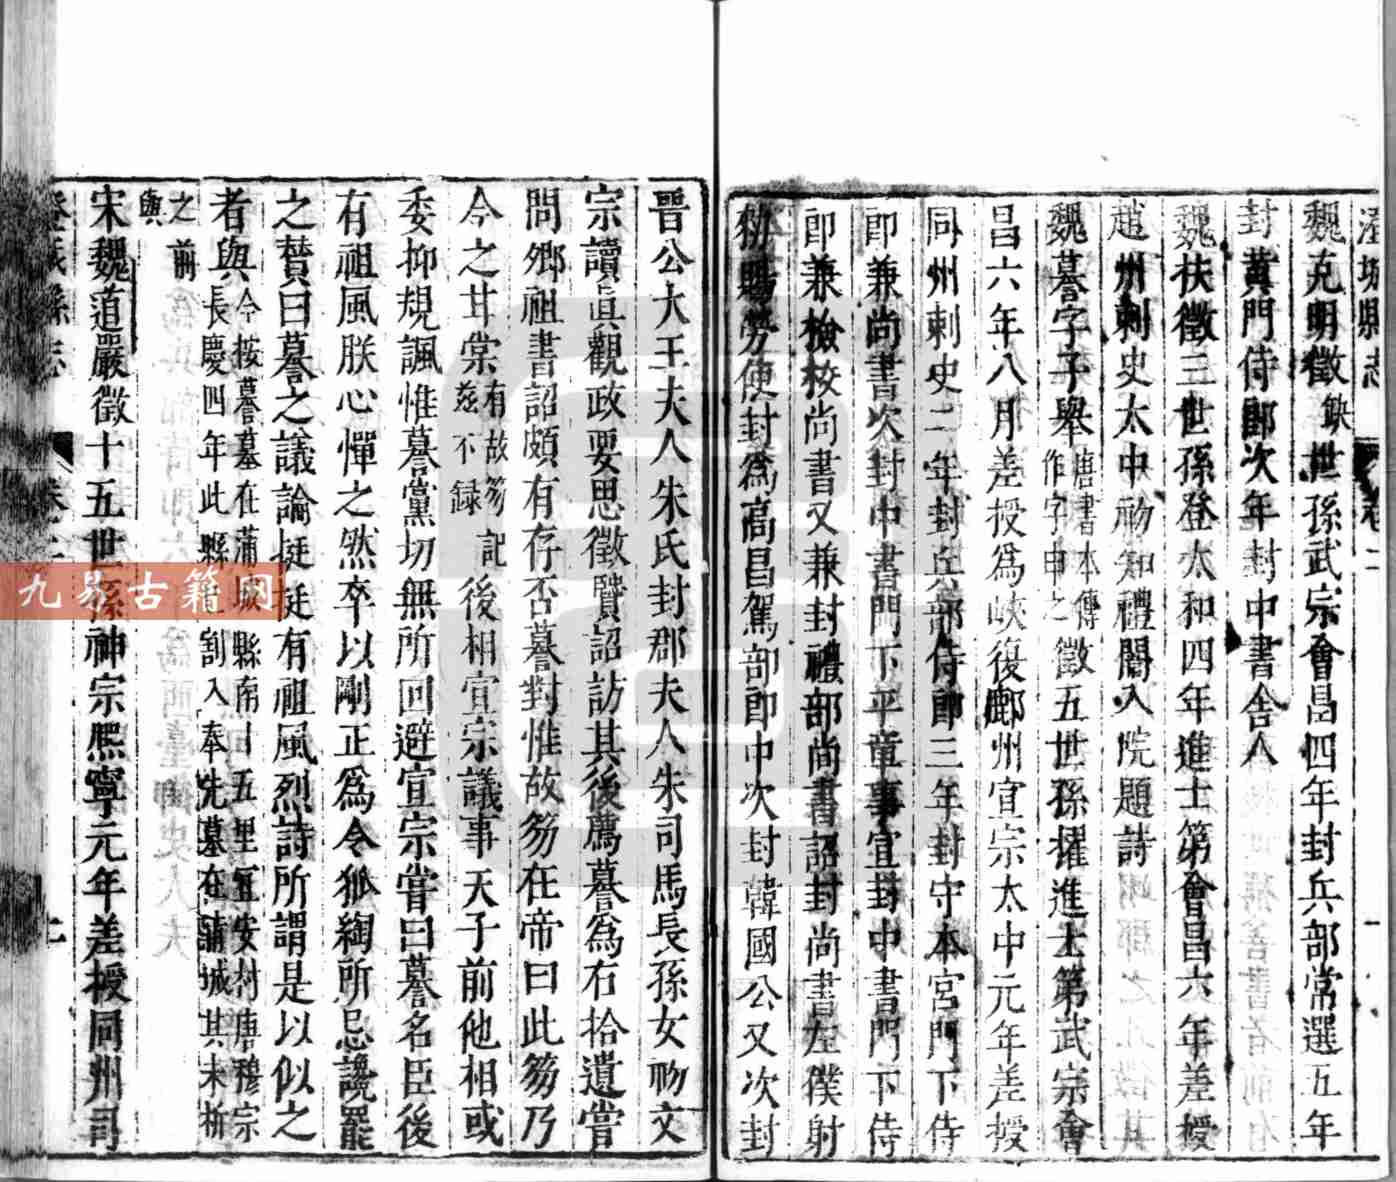 澄城縣志 卷二
魏克明徵缺世孫武宗會昌四年封兵部常選五年
封黃門侍郎次年封中書舍人
魏扶徵三世孫登太和四年進士第會昌六年差授
趙州刺史太中初知禮闈入院題詩
魏謩字子舉唐書本傳作字申之徵五世孫擢進士第武宗會
昌六年八月差授為峽復鄜州宣宗太中元年差授
同州刺史二年封兵部侍郎三年封守本宮門下侍
郎兼尚書次封中書門下平章事宣封中書門下侍
郎兼檢校尚書又兼封禮部尚書詔封尚書左僕射
勑賜勞使封為高昌駕部郎中次封韓國公又次封
晉公大王夫人朱氏封郡夫人朱司馬長孫女初文
宗讀眞觀政要思徵賢詔訪其後薦謩為右拾遺嘗
問鄉祖書詔頗有存否謩對惟故笏在帝曰此笏乃
今之甘棠有故笏記茲不録後相宣宗議事天子前他相或
委抑規諷惟謩黨切無所回避宣宗嘗曰謩名臣後
有祖風朕心憚之然卒以剛正為令狐綯所忌讒罷
之賛曰謩之議論挺挺有祖風烈詩所謂是以似之
者與今按謩墓在蒲城縣南十五里宜安村唐穆宗長慶四年此縣割入奉先墓在蒲城其未析
之前與
宋魏道嚴徵十五世孫神宗熈寧元年差授同州司
澄城縣志 卷二
九易古籍网